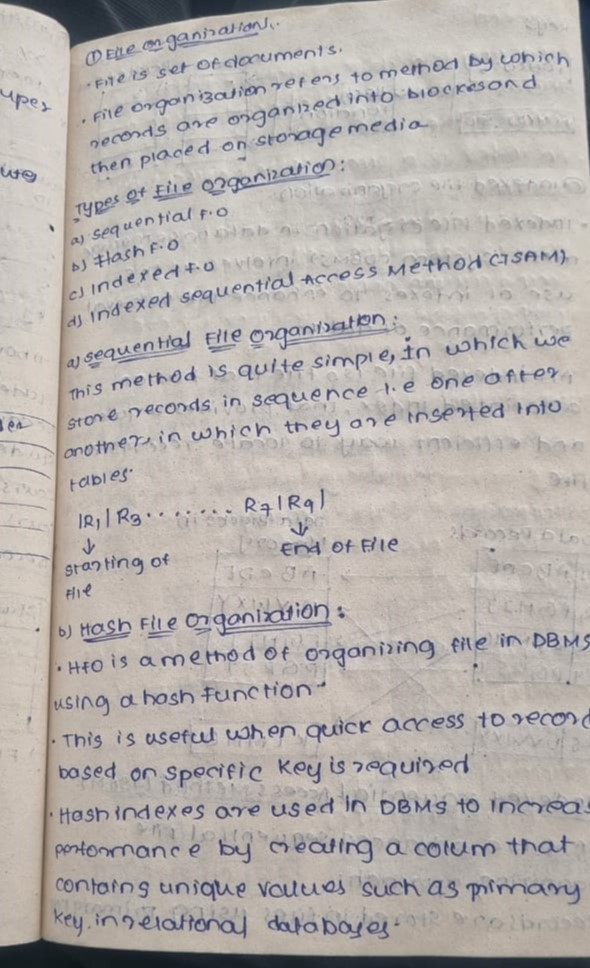 ① File organizations.
• File is set of documents.
• File organization refers to method by which
records are organized into blockes and
then placed on storage media
Types of File Organization:
a) Sequential F.O
b) Hash F.O
c) Indexed F.O
d) Indexed sequential Access Method (ISAM)
a) Sequential File Organization:
This method is quite simple, in which we
store records, in sequence i.e one after
another in which they are inserted into
tables.
|R1|R3........ R7|R9|
↓ ↓
starting of End of File
File
b) Hash File Organization:
• HFO is a method of organizing file in DBMS
using a hash function
• This is useful when quick access to record
based on specific key is required
• Hash indexes are used in DBMS to increas
performance by creating a colum that
contains unique values such as primary
key. in relational databases.